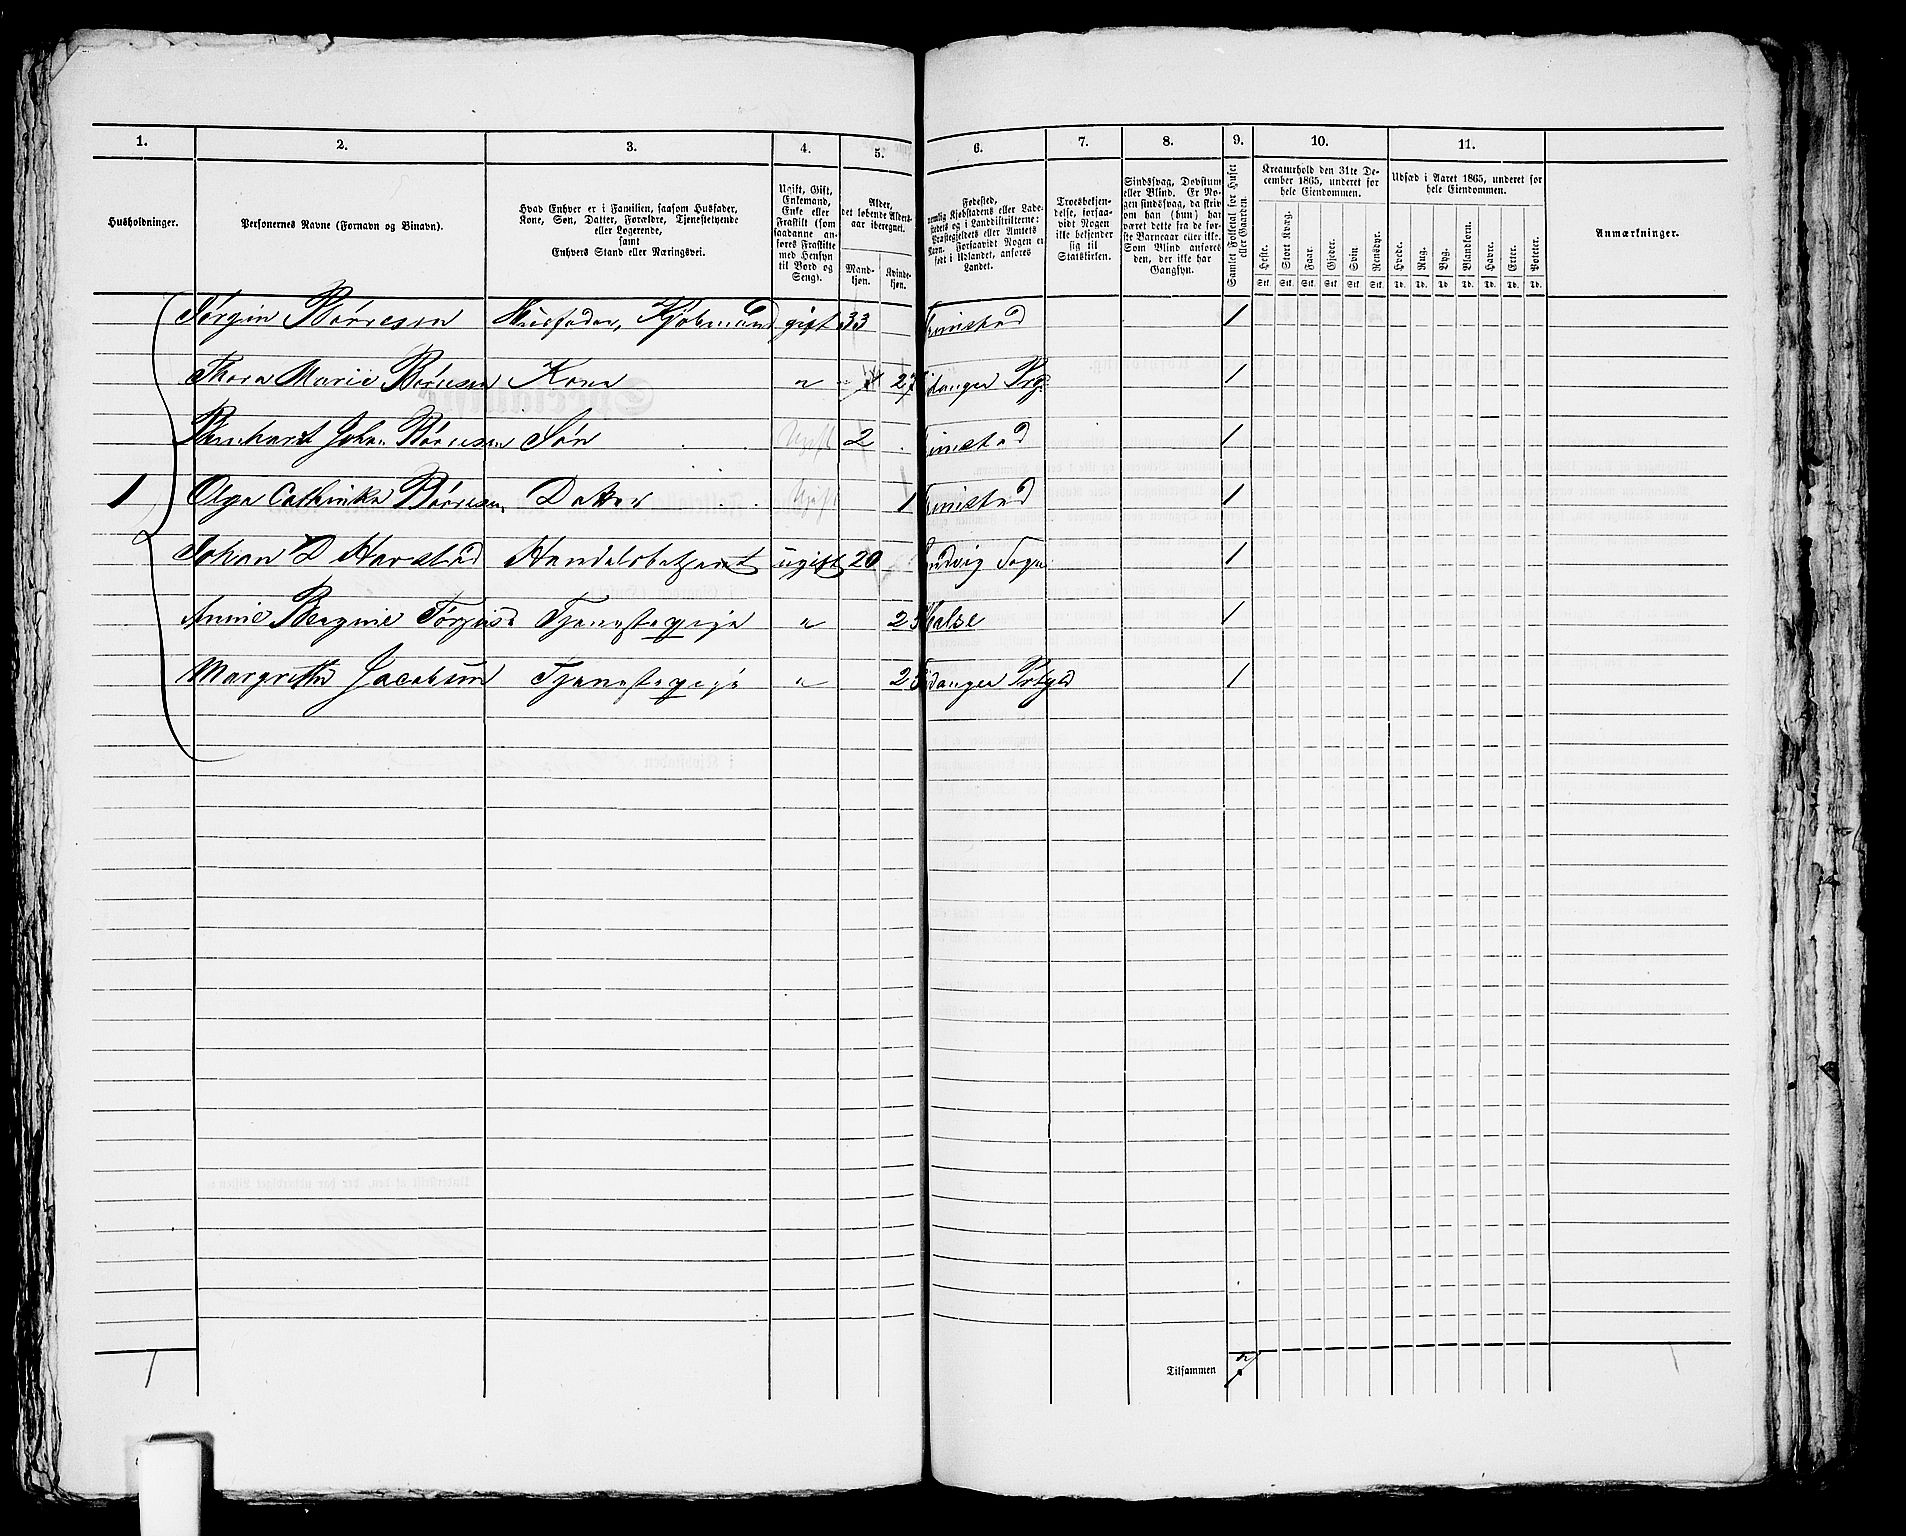 1. 2. 3. 4. 5. 6. 7. 8. 9. 10. 11.
Husholdninger.
Personernes Navne (Fornavn og Binavn).
Hvad Enhver er i Familien, saasom Husfader,
Kone, Søn, Datter, Forældre, Tjenestetyende
eller Logerende,
samt
Enhvers Stand eller Næringsvei.
Ugift, Gift,
Enkemand,
Enke eller
Fraskilt (som
saadanne an-
føres Fraskilte
med Hensyn
til Bord og
Seng).
Alder,
det løbende Alders-
aar iberegnet.
Mand-
kjøn.
Kvinde-
kjøn.
Fødested,
nemlig Kjøbstadens eller Lade-
stedets og i Landdistrikterne:
Præstegjeldets eller Amtets
Navn. Forsaavidt Nogen er
født i Udlandet, anføres
Landet.
Troesbekjen-
delse, forsaa-
vidt Nogen
ikke bekjender
sig til
Statskirken.
Sindssvag, Døvstum
eller Blind. Er No-
gen sindssvag, da skriv
om han (hun) har
været dette fra de før-
ste Barneaar eller ikke.
Som Blind anføres
den, der ikke har
Gangsyn.
Samlet Folketal for Huset
eller Gaarden.
Kreaturhold den 31te De-
cember 1865, underet for
hele Eiendommen.
Heste. Stort Kvæg. Faar. Gjeder. Svin. Rensdyr.
Stk. Stk. Stk. Stk. Stk. Stk.
Udsæd i Aaret 1865, underet for
hele Eiendommen.
Hvede. Rug. Byg. Blandkorn. Havre. Erter. Poteter.
Td. Td. Td. Td. Td. Td. Td.
Anmærkninger.
Jørgen Børresen Husfader, Kjøbmand gift 33 Grimstad 1
Thora Marie Børresen Kone " 27 Eidanger Prg. 1
Bernhard Johan Børresen Søn Ugift 2 Grimstad 1
1 Olga Cathinka Børresen Datter Ugift 1 Grimstad 1
Johan D Harstad Handelsbetjent ugift 20 Landvig Sogn 1
Anne Bergine Tørjusd Tjenestepige " Halse 1
Margrethe Jacobsen Tjenestepige " Eidanger Prtgld 1
1 Tilsammen 7